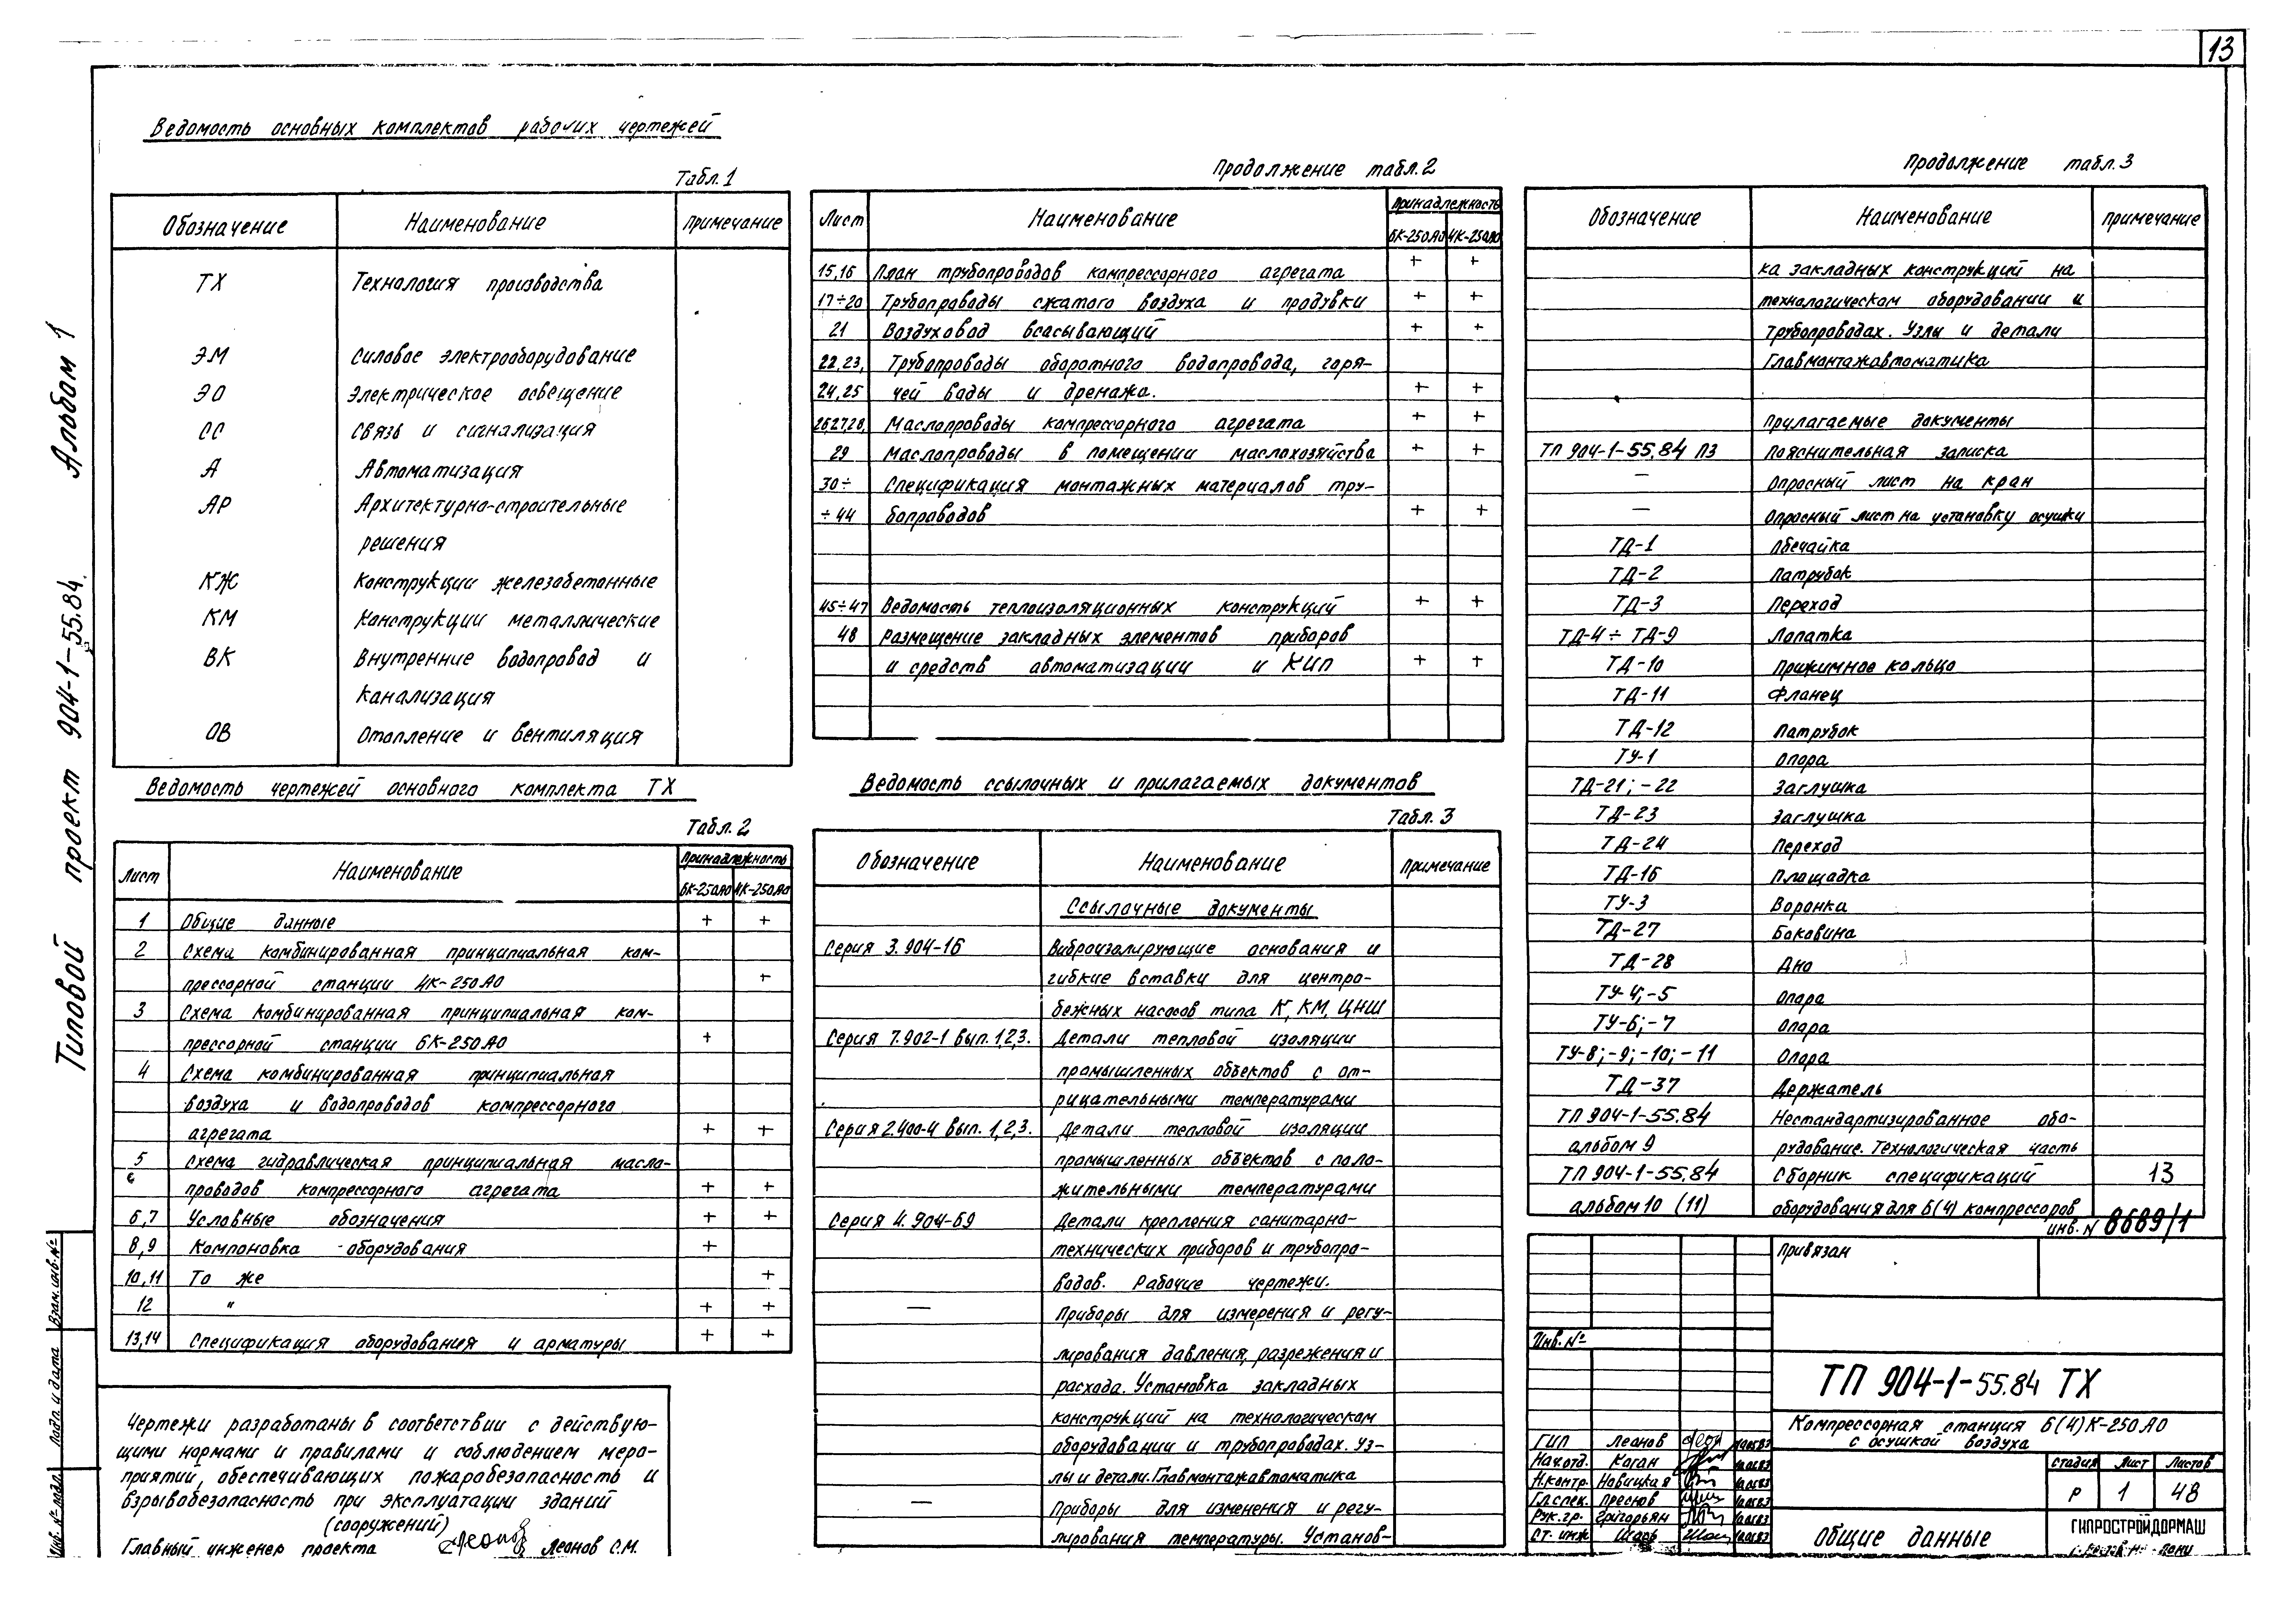 13
Ведомость основных комплектов рабочих чертежей
Табл.1
Обозначение Наименование Примечание
ТХ Технология производства
ЭМ Силовое электрооборудование
ЭО Электрическое освещение
СС Связь и сигнализация
А Автоматизация
АР Архитектурно-строительные
решения
КЖ Конструкции железобетонные
КМ Конструкции металлические
ВК Внутренние водопровод и
канализация
ОВ Отопление и вентиляция
Ведомость чертежей основного комплекта ТХ
Табл. 2
Лист Наименование Принадлежность
6К-250АО 4К-250АО
1 Общие данные + +
2 Схема комбинированная принципиальная ком-
прессорной станции 4К-250АО +
3 Схема комбинированная принципиальная ком-
прессорной станции 6К-250АО +
4 Схема комбинированная принципиальная
воздуха и водопроводов компрессорного
агрегата + +
5 Схема гидравлическая принципиальная масло-
проводов компрессорного агрегата + +
6,7 Условные обозначения + +
8,9 Компоновка оборудования +
10,11 То же +
12 " + +
13,14 Спецификация оборудования и арматуры + +
Чертежи разработаны в соответствии с действую-
щими нормами и правилами и соблюдением меро-
приятий, обеспечивающих пожаробезопасность и
взрывобезопасность при эксплуатации зданий
(сооружений)
Главный инженер проекта Леонов С.М.
Продолжение табл.2
Лист Наименование Принадлежность
6К-250АО 4К-250АО
15,16 План трубопроводов компрессорного агрегата + +
17÷20 Трубопроводы сжатого воздуха и продувки + +
21 Воздуховод всасывающий + +
22,23, Трубопроводы оборотного водопровода, горя-
24,25 чей воды и дренажа. + +
26,27,28, Маслопроводы компрессорного агрегата + +
29 Маслопроводы в помещении маслохозяйства + +
30÷ Спецификация монтажных материалов тру-
÷44 бопроводов + +
45÷47 Ведомость теплоизоляционных конструкций + +
48 Размещение закладных элементов приборов
и средств автоматизации и КИП + +
Ведомость ссылочных и прилагаемых документов
Табл. 3
Обозначение Наименование Примечание
Ссылочные документы
Серия 3.904-16 Виброизолирующие основания и
гибкие вставки для центро-
бежных насосов типа К, КМ, ЦНШ
Серия 7.902-1 вып.1,2,3. Детали тепловой изоляции
промышленных объектов с от-
рицательными температурами
Серия 2.400-4 вып. 1,2,3. Детали тепловой изоляции
промышленных объектов с поло-
жительными температурами
Серия 4.904-69 Детали крепления санитарно-
технических приборов и трубопро-
водов. Рабочие чертежи.
— Приборы для измерения и регу-
лирования давления, разрежения и
расхода. Установка закладных
конструкций на технологическом
оборудовании и трубопроводах. Уз-
лы и детали. Главмонтажавтоматика
— Приборы для изменения и регу-
лирования температуры. Установ-
Продолжение табл.3
Обозначение Наименование примечание
ка закладных конструкций на
технологическом оборудовании и
трубопроводах. Узлы и детали
Главмонтажавтоматика
Прилагаемые документы
ТП 904-1-55.84 ПЗ Пояснительная записка
— Опросный лист на кран
— Опросный лист на установку осушки
ТД-1 Обечайка
ТД-2 Патрубок
ТД-3 Переход
ТД-4÷ТД-9 Лопатка
ТД-10 Прижимное кольцо
ТД-11 Фланец
ТД-12 Патрубок
ТУ-1 Опора
ТД-21; -22 Заглушка
ТД-23 Заглушка
ТД-24 Переход
ТД-16 Площадка
ТУ-3 Воронка
ТД-27 Боковина
ТД-28 Дно
ТУ-4;-5 Опора
ТУ-6;-7 Опора
ТУ-8;-9;-10;-11 Опора
ТД-37 Держатель
ТП 904-1-55.84 Нестандартизированное обо-
альбом 9 рудование. Технологическая часть
ТП 904-1-55.84 Сборник спецификаций 13
альбом 10 (11) оборудования для 6(4) компрессоров
инв. N 8689/1
Привязан
Инв. №
ТП 904-1-55.84 ТХ
Компрессорная станция 6(4)К-250АО
с осушкой воздуха
ГИП Леонов
Нач.отд. Коган
Н.контр. Новицкая
Гл.спец. Преснов
Рук.гр. Григорьян
Ст. инж.
стадия Лист Листов
Р 1 48
Общие данные
ГИПРОСТРОЙДОРМАШ
Типовой проект 904-1-55.84. Альбом 1
Взам. инв. №
Подп. и дата
Инв. № подл.